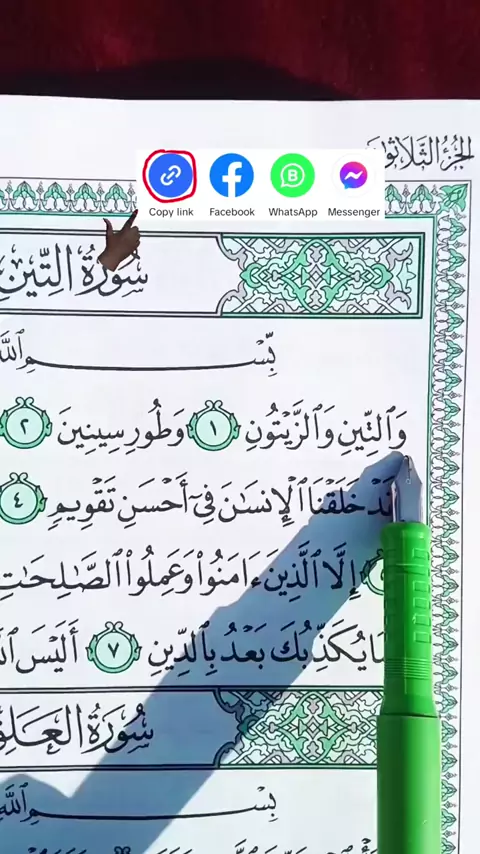 الجُزْءُ الثَّلَاثُونَ
Copy link Facebook WhatsApp Messenger
سُورَةُ التِّينِ
بِسْمِ ٱللَّهِ
وَٱلتِّينِ وَٱلزَّيْتُونِ ١ وَطُورِ سِينِينَ ٢
خَلَقْنَا ٱلْإِنسَٰنَ فِىٓ أَحْسَنِ تَقْوِيمٍ ٤
إِلَّا ٱلَّذِينَ ءَامَنُوا۟ وَعَمِلُوا۟ ٱلصَّٰلِحَٰتِ
يُكَذِّبُكَ بَعْدُ بِٱلدِّينِ ٧ أَلَيْسَ
سُورَةُ العَلَقِ
بِسْمِ ٱللَّهِ